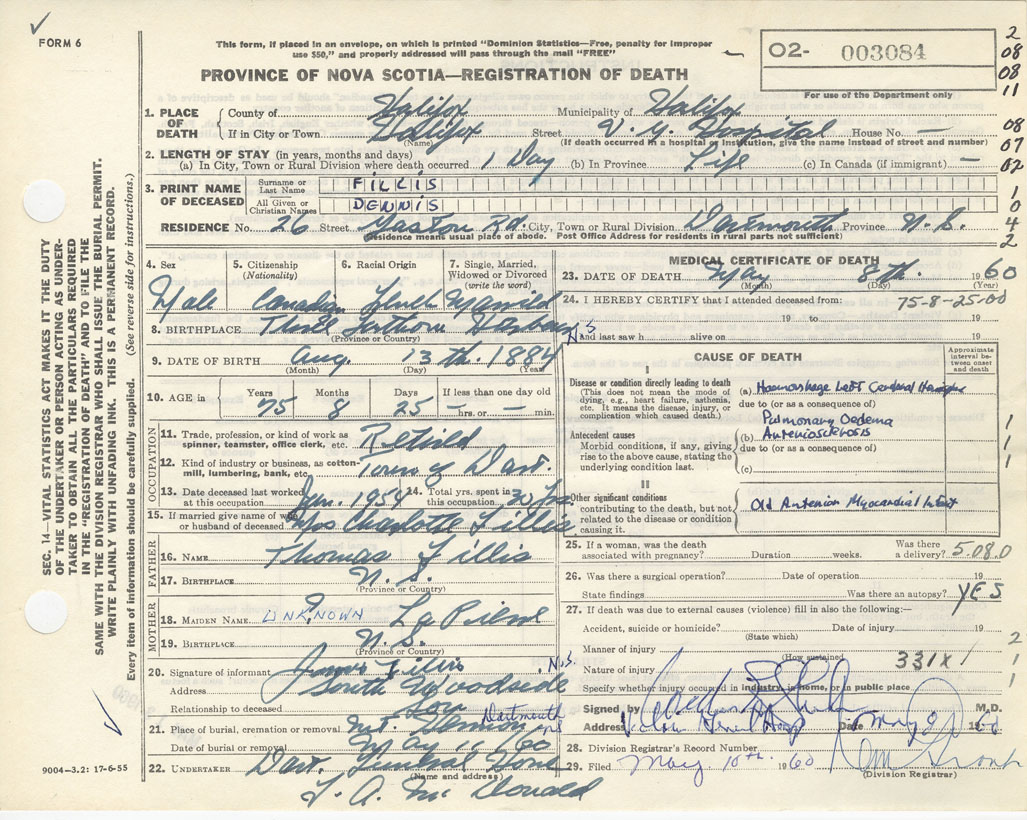 FORM 6
This form, if placed in an envelope, on which is printed "Dominion Statistics—Free, penalty for improper
use $50," and properly addressed will pass through the mail "FREE"
O2- 003084
For use of the Department only
2
08
08
11
08
07
02
1
0
4
2
PROVINCE OF NOVA SCOTIA—REGISTRATION OF DEATH
SEC. 14—VITAL STATISTICS ACT MAKES IT THE DUTY
OF THE UNDERTAKER OR PERSON ACTING AS UNDER-
TAKER TO OBTAIN ALL THE PARTICULARS REQUIRED
IN THE "REGISTRATION OF DEATH" AND TO FILE THE
SAME WITH THE DIVISION REGISTRAR WHO SHALL ISSUE THE BURIAL PERMIT.
WRITE PLAINLY WITH UNFADING INK. THIS IS A PERMANENT RECORD.
Every item of information should be carefully supplied. (See reverse side for instructions.)
1. PLACE OF DEATH
County of Halifax Municipality of Halifax
If in City or Town Halifax Street V. G. Hospital House No. —
(Name) (If death occurred in a hospital or institution, give the name instead of street and number)
2. LENGTH OF STAY (in years, months and days)
(a) In City, Town or Rural Division where death occurred 1 Day (b) In Province Life (c) In Canada (if immigrant) —
3. PRINT NAME OF DECEASED
Surname or Last Name FILLIS
All Given or Christian Names DENNIS
RESIDENCE No. 26 Street Gaston Rd. City, Town or Rural Division Dartmouth Province N.S.
(Residence means usual place of abode. Post Office Address for residents in rural parts not sufficient)
4. Sex 5. Citizenship (Nationality) 6. Racial Origin 7. Single, Married, Widowed or Divorced (write the word)
Male Canadian Black Married
8. BIRTHPLACE Three Fathom Harbour N.S
(Province or Country)
9. DATE OF BIRTH Aug. 13th. 1884
(Month) (Day) (Year)
10. AGE in Years Months Days If less than one day old
75 8 25 — hrs. or — min.
OCCUPATION
11. Trade, profession, or kind of work as spinner, teamster, office clerk, etc. Retired
12. Kind of industry or business, as cotton-mill, lumbering, bank, etc. Town of Dart.
13. Date deceased last worked at this occupation Jan. 1954 14. Total yrs. spent in this occupation 30 Yrs.
15. If married give name of wife or husband of deceased Mrs Charlotte Fillis
FATHER
16. NAME Thomas Fillis
17. BIRTHPLACE N.S.
(Province or Country)
MOTHER
18. MAIDEN NAME UNKNOWN La Pierre
19. BIRTHPLACE N.S.
(Province or Country)
20. Signature of informant James Fillis
Address South Woodside N.S.
Relationship to deceased Son
21. Place of burial, cremation or removal Mt. Hermon Dartmouth NS
Date of burial or removal May 11 60
22. UNDERTAKER Dart. Funeral Home
(Name and address)
T. A. Mc Donald
9004—3.2: 17-6-55
MEDICAL CERTIFICATE OF DEATH
23. DATE OF DEATH May 8th. 1960
(Month) (Day) (Year)
24. I HEREBY CERTIFY that I attended deceased from: 75-8-25-00
19 to 19
and last saw h alive on 19
CAUSE OF DEATH
Approximate interval between onset and death
I
Disease or condition directly leading to death
(This does not mean the mode of dying, e.g., heart failure, asthenia, etc. It means the disease, injury, or complication which caused death.)
(a) Haemorrhage Left Cerebral
due to (or as a consequence of)
Pulmonary Oedema
Antecedent causes
Morbid conditions, if any, giving rise to the above cause, stating the underlying condition last.
(b) Arteriosclerosis
due to (or as a consequence of)
(c)
1
1
1
II
Other significant conditions contributing to the death, but not related to the disease or condition causing it.
Old Anterior Myocardial Infarct
25. If a woman, was the death associated with pregnancy? Duration weeks. Was there a delivery? 5.08.0
26. Was there a surgical operation? Date of operation 19
State findings Was there an autopsy? YES
27. If death was due to external causes (violence) fill in also the following:—
Accident, suicide or homicide? Date of injury 19
(State which)
Manner of injury
(How sustained)
Nature of injury 331X1
Specify whether injury occurred in industry, in home, or in public place
2
1
1
Signed by M.D.
Address Victoria General Hosp Date May 9 1960
28. Division Registrar's Record Number
29. Filed May 10th. 1960
(Division Registrar)